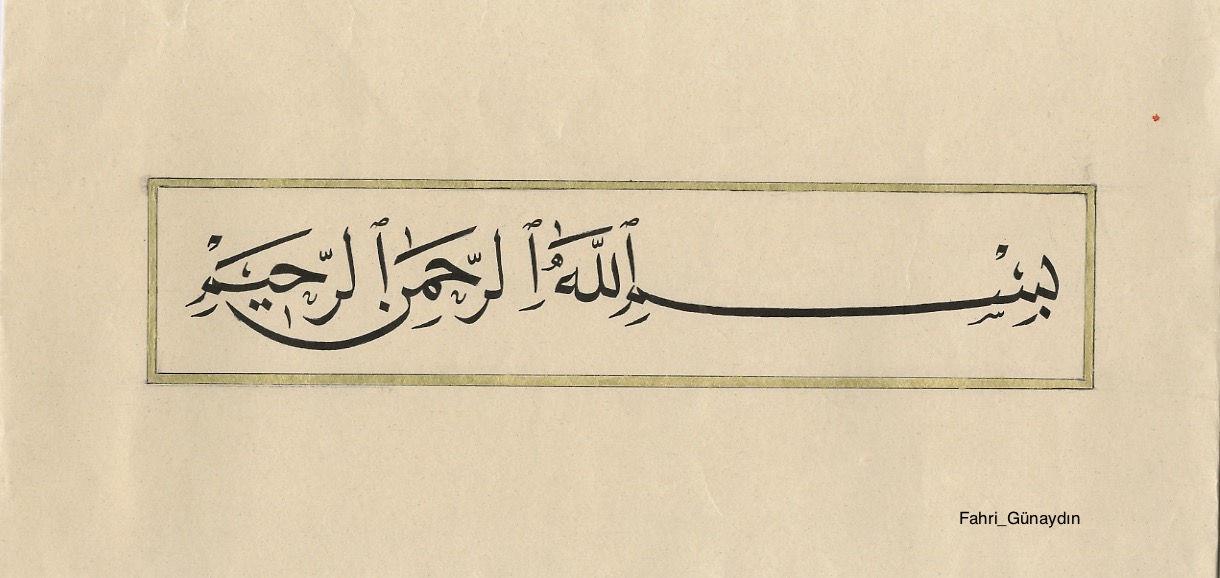 بِسْمِ ٱللَّٰهِ ٱلرَّحْمَٰنِ ٱلرَّحِيمِ
Fahri_Günaydın